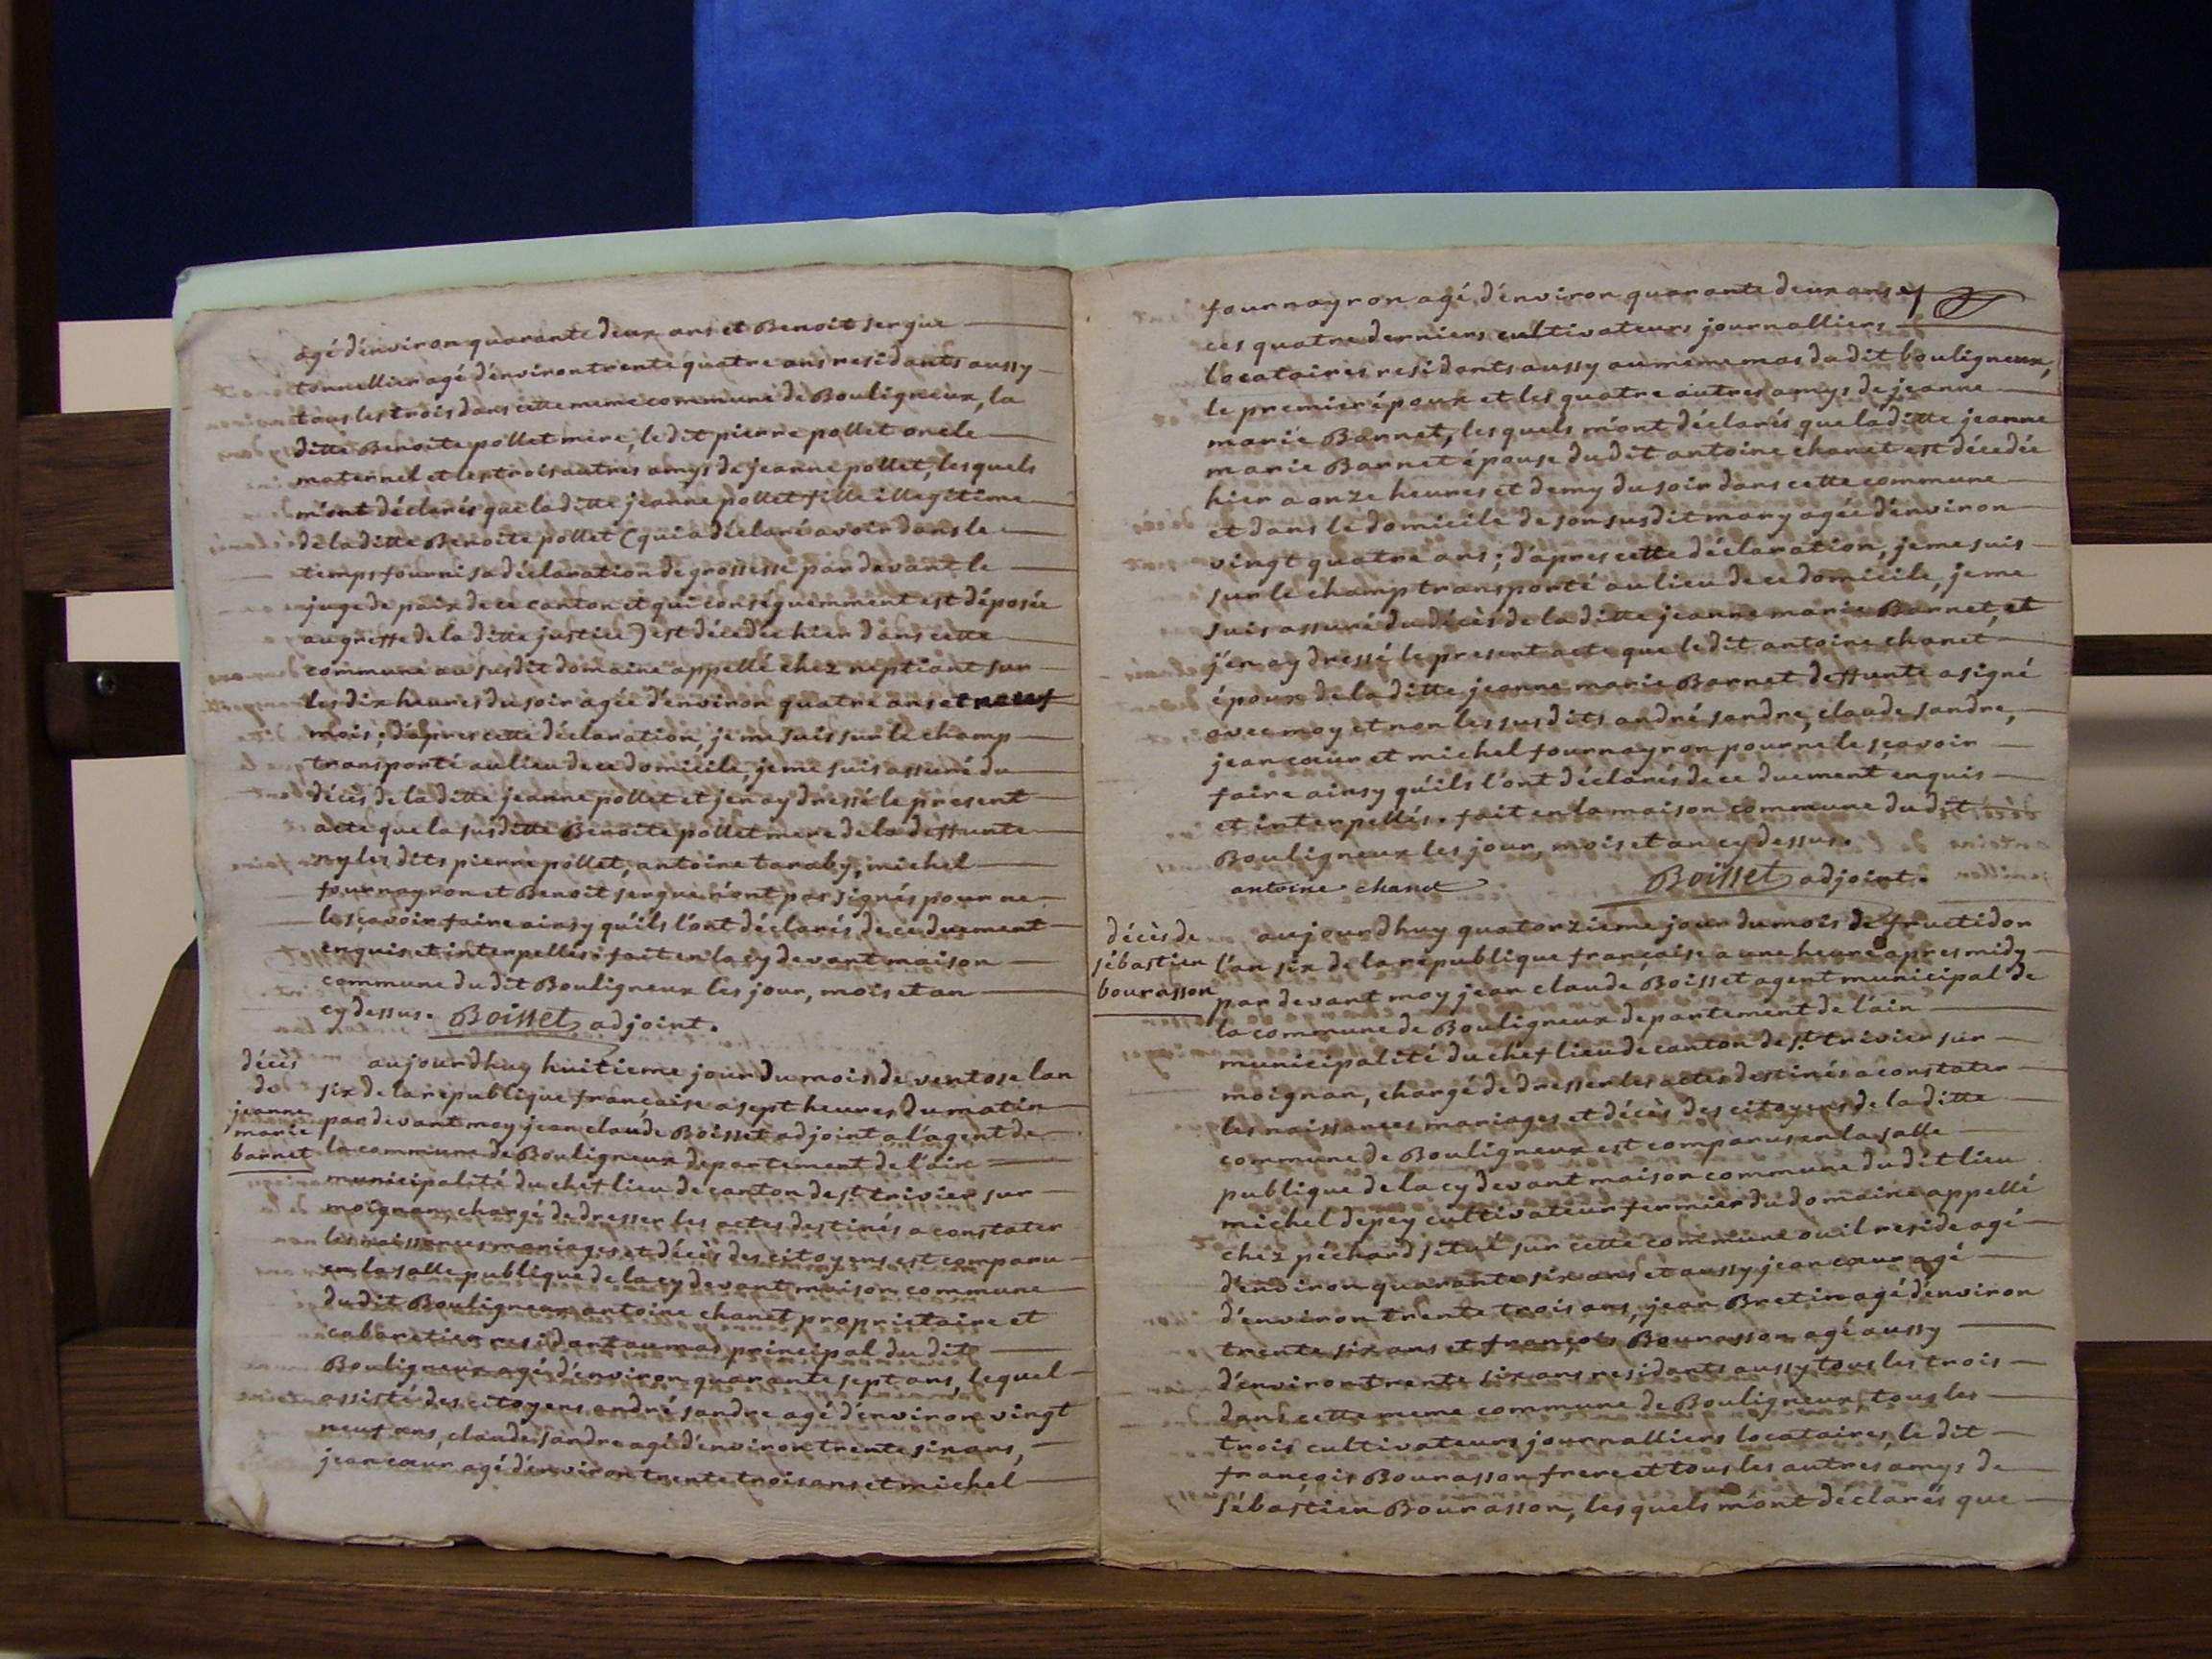 agé d'énviron quarante deux ans et Benoit sergue
tonnellier agé d'énviron trente quatre ans residants aussy
tous les trois dans cette meme commune de Bouligneux, la
ditte Benoite pollet mere, le dit pierre pollet oncle
maternel et les trois autres amys de jeanne pollet, lesquels
m'ont déclarés que la ditte jeanne pollet fille illegitime
de la ditte Benoite pollet (qui a déclaré avoir dans le
temps fourni sa déclaration de grossesse par devant le
juge de paix de ce canton et qui conséquemment est déposée
au greffe de la ditte justice) est décedée hier dans cette
commune au susdit domaine appellé chez neptiant sur
les dix heures du soir agée d'énviron quatre ans et neuf
mois; d'apres cette déclaration, je me suis sur le champ
transporté au lieu de ce domicile, je me suis assuré du
décès de la ditte jeanne pollet et j'en ay dressé le present
acte que la susditte Benoite pollet mere de la deffunte
ny les dits pierre pollet, antoine taraby, michel
fournayron et Benoit sergue n'ont pas signés pour ne
le sçavoir faire ainsy qu'ils l'ont déclarés de ce duement
enquis et interpellés. fait en la cy devant maison
commune du dit Bouligneux les jour, mois et an
cy dessus. Boisset adjoint.
décès
de
jeanne
marie
barnet
aujourdhuy huitieme jour du mois de ventose lan
six de la republique française a sept heures du matin
par devant moy jean claude Boisset adjoint a l'agent de
la commune de Bouligneux departement de l'ain
municipalité du chef lieu de canton de st. trivier sur
moignan, chargé de dresser les actes destinés a constater
les naissances mariages et décès des citoyens est comparu
en la salle publique de la cy devant maison commune
du dit Bouligneux antoine chanet proprietaire et
cabaretier residant au mas principal du dit
Bouligneux agé d'énviron quarante sept ans, lequel
assisté des citoyens andré sandre agé d'énviron vingt
neuf ans, claude sandre agé d'énviron trente six ans,
jean cœur agé d'énviron trente trois ans et michel
fournayron agé d'énviron quarante deux ans
ces quatre derniers cultivateurs journalliers
locataires residants aussy au meme mas du dit bouligneux,
le premier époux et les quatre autres amys de jeanne
marie Barnet, lesquels m'ont déclarés que la ditte jeanne
marie Barnet épouse du dit antoine chanet est décedée
hier a onze heures et demy du soir dans cette commune
et dans le domicile de son susdit mary agée d'énviron
vingt quatre ans; d'apres cette déclaration, je me suis
sur le champ transporté au lieu de ce domicile, je me
suis assuré du décès de la ditte jeanne marie Barnet, et
j'en ay dressé le present acte que le dit antoine chanet
époux de la ditte jeanne marie Barnet deffunte a signé
avec moy et non les susdits andré sandre, claude sandre,
jean cœur et michel fournayron pour ne le sçavoir
faire ainsy qu'ils l'ont déclarés de ce duement enquis
et interpellés. fait en la maison commune du dit
Bouligneux les jour, mois et an cy dessus.
antoine chanet Boisset adjoint.
décès de
sébastien
bourasson
aujourdhuy quatorzieme jour du mois de fructidor
l'an six de la république française a une heure apres midy
par devant moy jean claude Boisset agent municipal de
la commune de Bouligneux departement de l'ain
municipalité du chef lieu de canton de st. trivier sur
moignan, chargé de dresser les actes destinés a constater
les naissances mariages et décès des citoyens de la ditte
commune de Bouligneux est comparus en la salle
publique de la cy devant maison commune du dit lieu
michel depey cultivateur fermier du domaine appellé
chez péchard situé sur cette commune ou il reside agé
d'énviron quarante six ans et aussy jean cœur agé
d'énviron trente trois ans, jean Bretin agé d'énviron
trente six ans et françois Bourasson agé aussy
d'énviron trente six ans residants aussy tous les trois
dans cette meme commune de Bouligneux, tous les
trois cultivateurs journalliers locataires, le dit
françois Bourasson frere et tous les autres amys de
Sébastien Bourasson, lesquels m'ont déclarés que